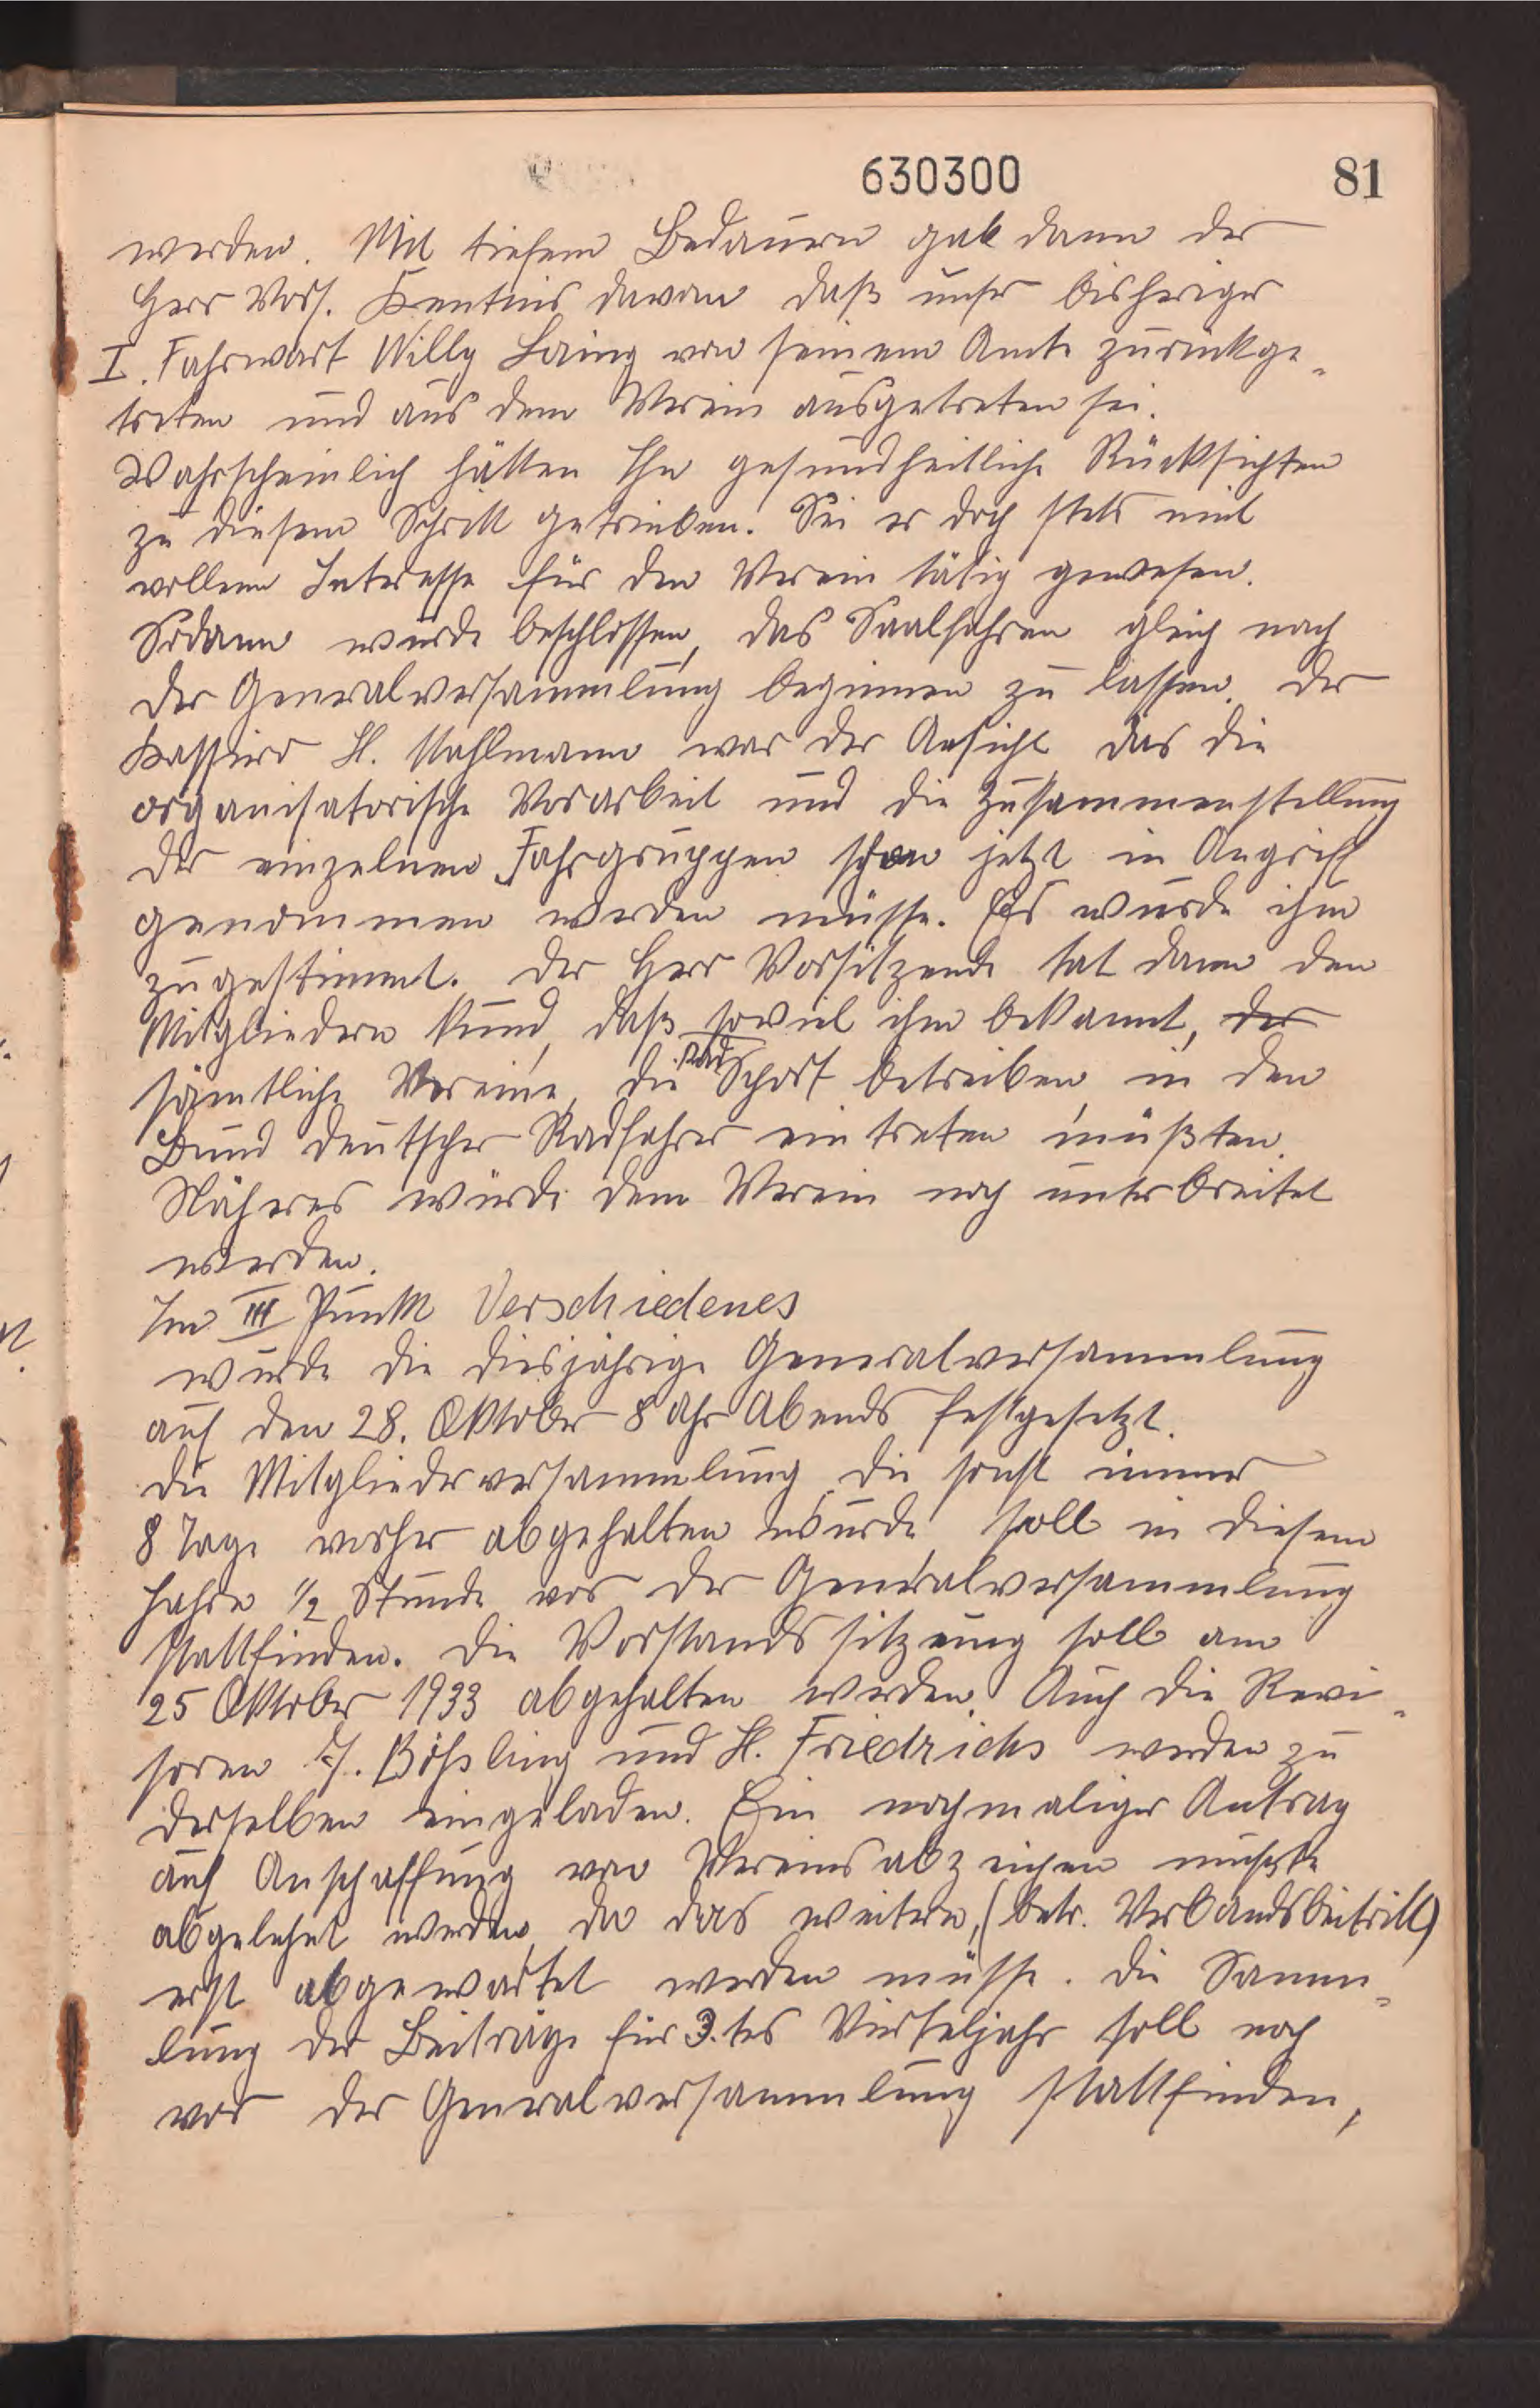 630300
81
werden. Mit tiefem Bedauern gab dann der
Herr Vors. Kentnis davon daß unser bisheriger
I. Fahrwart Willy Laing von seinem Amte zurückge-
treten und aus dem Verein ausgetreten sei.
Wahrscheinlich hätten Ihn gesundheitliche Rücksichten
zu diesem Schritt getrieben. Sei er doch stets mit
vollem Interesse für den Verein tätig gewesen.
Sodann wurde beschlossen, das Saalfahren gleich nach
der Generalversammlung beginnen zu lassen. Der
Kassirer H. Mahlmann war der Ansicht das die
organisatorische Vorarbeit und die Zusammenstellung
der einzelnen Fahrgruppen schon jetzt in Angriff
genommen werden müsse. Es wurde ihm
zugestimmt. Der Herr Vorsitzende tat dann den
Mitgliedern kund, daß soviel ihm bekannt, der
sämtliche Vereine, die Rad Sport betreiben, in den
Bund deutscher Radfahrer eintreten müßten.
Näheres würde dem Verein noch unterbreitet
werden.
Im III Punkt Verschiedenes
wurde die diesjährige Generalversammlung
auf den 28. Oktober 8 Uhr Abends festgesetzt.
Die Mitgliederversammlung, die sonst immer
8 Tage vorher abgehalten wurde, soll in diesem
Jahre 1/2 Stunde vor der Generalversammlung
stattfinden. Die Vorstandssitzung soll am
25 Oktober 1933 abgehalten werden. Auch die Revi-
soren Bößling und H. Friedrichs werden zu
derselben eingeladen. Ein nochmaliger Antrag
auf Anschaffung von Vereinsabzeichen mußte
abgelehnt werden, da das weitere, (betr. Verbandsbeitritt)
erst abgewartet werden müsse. Die Samm-
lung der Beiträge für 3.tes Vierteljahr soll noch
vor der Generalversammlung stattfinden,